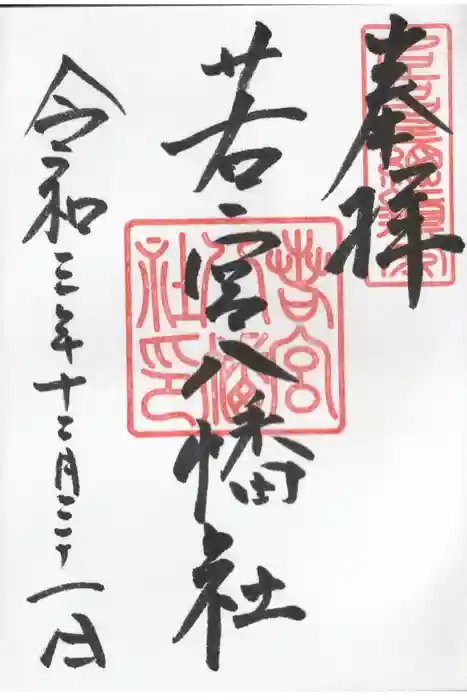 奉拝
若宮八幡社
若宮八幡社印
令和三年十二月二十一日